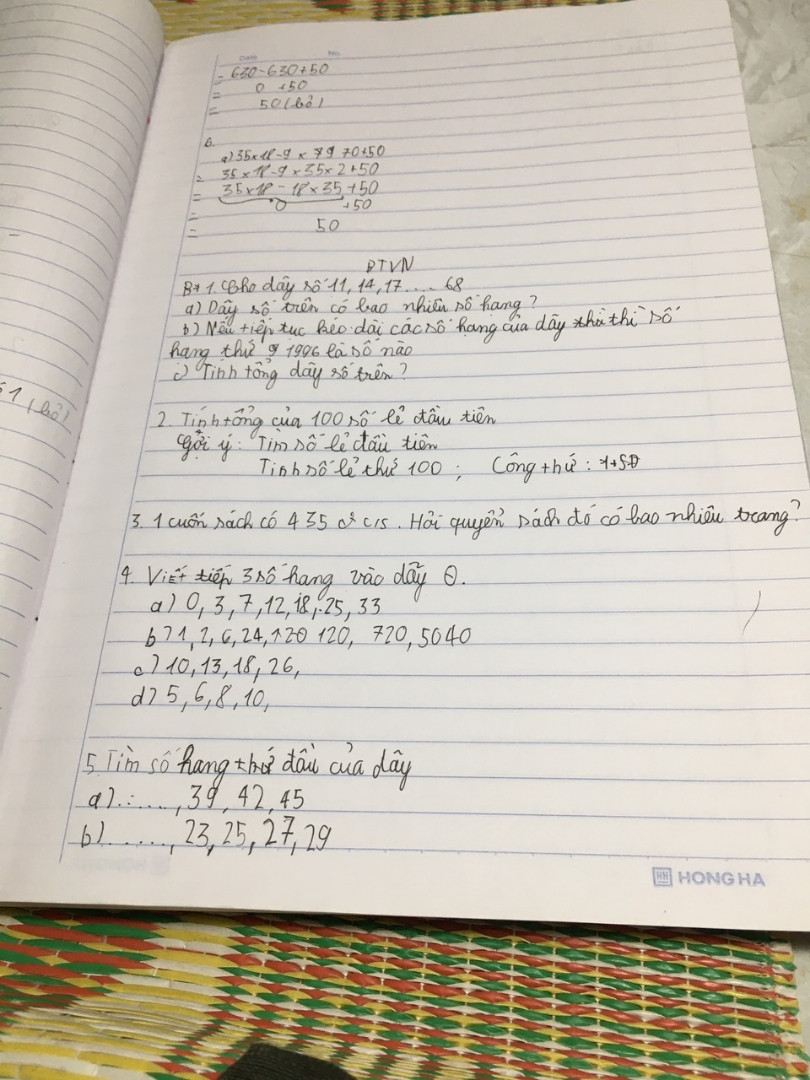 Date No.
= 630-630+50
= 0 +50
= 50 (bỏ)
6.
a) 35×18-9 × 70+50
= 35×18-9×35×2+50
= 35×18 - 18×35+50
= 0 +50
= 50
BTVN
Bt 1. Cho dãy số 11, 14, 17..... 68
a) Dãy số trên có bao nhiêu số hang?
b) Nếu tiếp tục kéo dài các số hạng của dãy thì số
hang thứ 1996 là số nào
c) Tính tổng dãy số trên?
1 (bỏ)
2. Tính tổng của 100 số lẻ đầu tiên
Gợi ý: Tìm số lẻ đầu tiên
Tính số lẻ thứ 100; Công thứ:
3. 1 cuốn sách có 435 c/s. Hỏi quyển sách đó có bao nhiêu trang?
4. Viết tiếp 3 số hang vào dãy
a) 0, 3, 7, 12, 18, 25, 33
b) 1, 2, 6, 24, 120, 720, 5040
c) 10, 13, 18, 26,
d) 5, 6, 8, 10,
5. Tìm số hang thứ đầu của dãy
a) ....., 39, 42, 45
b) ....., 23, 25, 27, 29
HH HONG HA